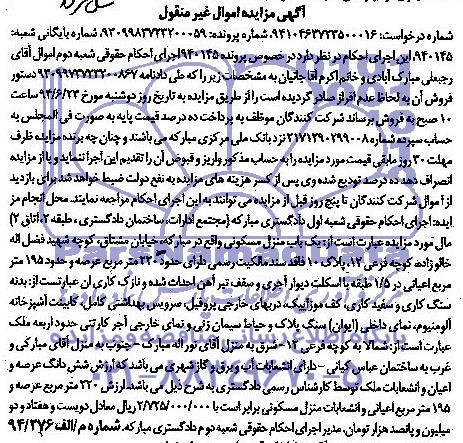 آگهی مزایده اموال غیر منقول
شماره درخواست: ۹۴۱۰۴۶۳۷۲۳۵۰۰۰۱۶ شماره پرونده: ۹۳۰۹۹۸۳۷۲۳۲۰۰۰۵۹ شماره بایگانی شعبه:
۹۴۰۱۴۵ این اجرای احکام در نظر دارد در خصوص پرونده ۹۴۰۱۴۵ اجرای احکام حقوقی شعبه دوم آموال آقای
رجبعلی مبارک آبادی و خانم اکرم آقاجانیان به مشخصات زیر را که طی دادنامه ۹۳۰۹۹۷۳۷۲۳۲۰۰۸۶۷ دستور
فروش آن به لحاظ عدم افراز صادر گردیده است را از طریق مزایده به تاریخ روز دوشنبه مورخ ۹۴/۶/۲۳ ساعت
۱۰ صبح به فروش برساند شرکت کنندگان موظف به پرداخت ده درصد قیمت پایه به صورت فی المجلس به
حساب سپرده شماره ۲۱۷۱۲۹۰۲۹۹۰۰۸ نزد بانک ملی مرکزی مبارکه می باشند و چنان چه برنده مزایده ظرف
مهلت ۳۰ روز مابقی قیمت مورد مزایده را به حساب مذکور واریز و قبوض آن را تقدیم این اجرا ننماید و یا از مزایده
انصراف دهد ده درصد تودیع شده وی پس از کسر هزینه های مزایده به نفع دولت ضبط خواهد شد برای بازدید
از آموال شرکت کنندگان تا پنج روز قبل از مزایده می توانند به این اجرای احکام مراجعه نمایند. محل انجام مز
ایده: اجرای احکام حقوقی شعبه اول دادگستری مبارکه (مجتمع ادارات، ساختمان دادگستری، طبقه ۲، اتاق ۲)
مال مورد مزایده عبارت است از: یک باب منزل مسکونی واقع در مبارکه، خیابان مشتاق، کوچه شهید فضل اله
خانوزاده، کوچه فرعی ۱۲، پلاک ۱۰ فاقد سند مالکیت رسمی دارای حدود ۲۲۰ متر مربع عرصه و حدود ۱۹۵ متر
مربع اعیانی در ۱/۵ طبقه با اسکلت دیوار آجری و سقف تیر آهن احداث شده و نازک کاری آن عبارتست از: بدنه
سنگ کاری و سفید کاری، کف موزائیک، درهای خارجی پروفیل، سرویس بهداشتی کامل، کابینت آشپزخانه
آلومنیوم، نمای داخلی (ایوان) سنگ پلاک و حیاط سیمان زنی و نمای خارجی آجر کارتنی حدود اربعه ملک
عبارت است از: شمالا به کوچه فرعی ۱۲- شرق به منزل آقای نور اله مبارکی- جنوب به منزل آقای مبارکی و
غرب به ساختمان عباس کیانی- دارای انشعابات آب و برق و گاز شهری می باشد که ارزش شش دانگ عرصه و
اعیان و انشعابات ملک توسط کارشناس رسمی دادگستری به شرح ذیل می باشد. ارزش ۲۲۰ متر مربع عرصه و
۱۹۵ متر مربع اعیانی و انشعابات منزل مسکونی برابر است با ۲/۷۲۵/۰۰۰/۰۰۰ ریال معادل دویست و هفتاد و دو
میلیون و پانصد هزار تومان. مدیر اجرای احکام حقوقی شعبه دوم دادگستری مبارکه. شماره م/الف ۹۴/۳۷۶